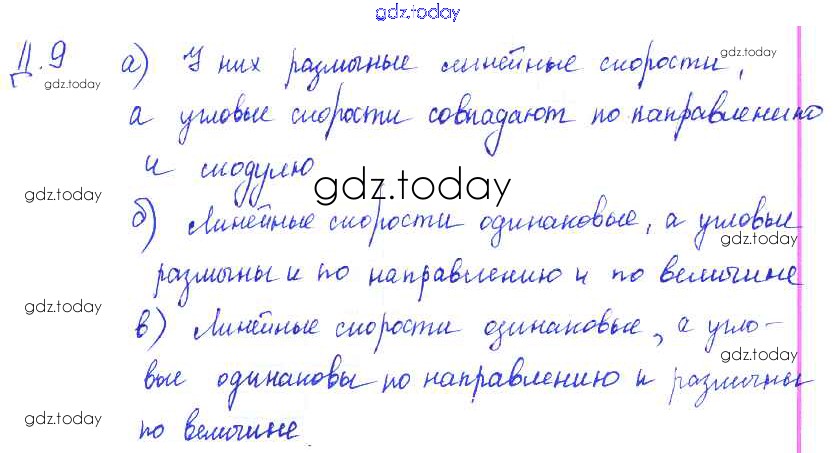 gdz.today
Д.9 а) У них различные линейные скорости,
gdz.today gdz.today
а угловые скорости совпадают по направлению
и модулю
gdz.today gdz.today
б) Линейные скорости одинаковые, а угловые
gdz.today
различны и по направлению и по величине
gdz.today
в) Линейные скорости одинаковые, а угло-
gdz.today
вые одинаковы по направлению и различны
gdz.today
по величине.